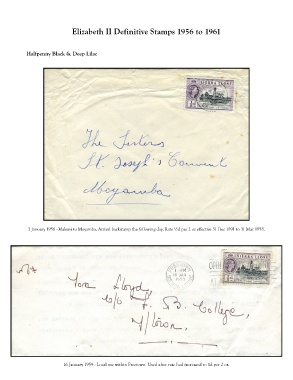 Elizabeth II Definitive Stamps 1956 to 1961
Halfpenny Black & Deep Lilac
SIERRA LEONE
The Sisters
St. Joseph's Convent
Moyamba
2 January 1956 - Makeni to Moyamba. Arrived backstamp the following day. Rate ½d per 2 oz effective
SIERRA LEONE
Tom Lloyd,
c/o F. B. College,
F/town.
16 January 1959 - Local use within Freetown. Used after rate had increased to 1d per 2 oz.